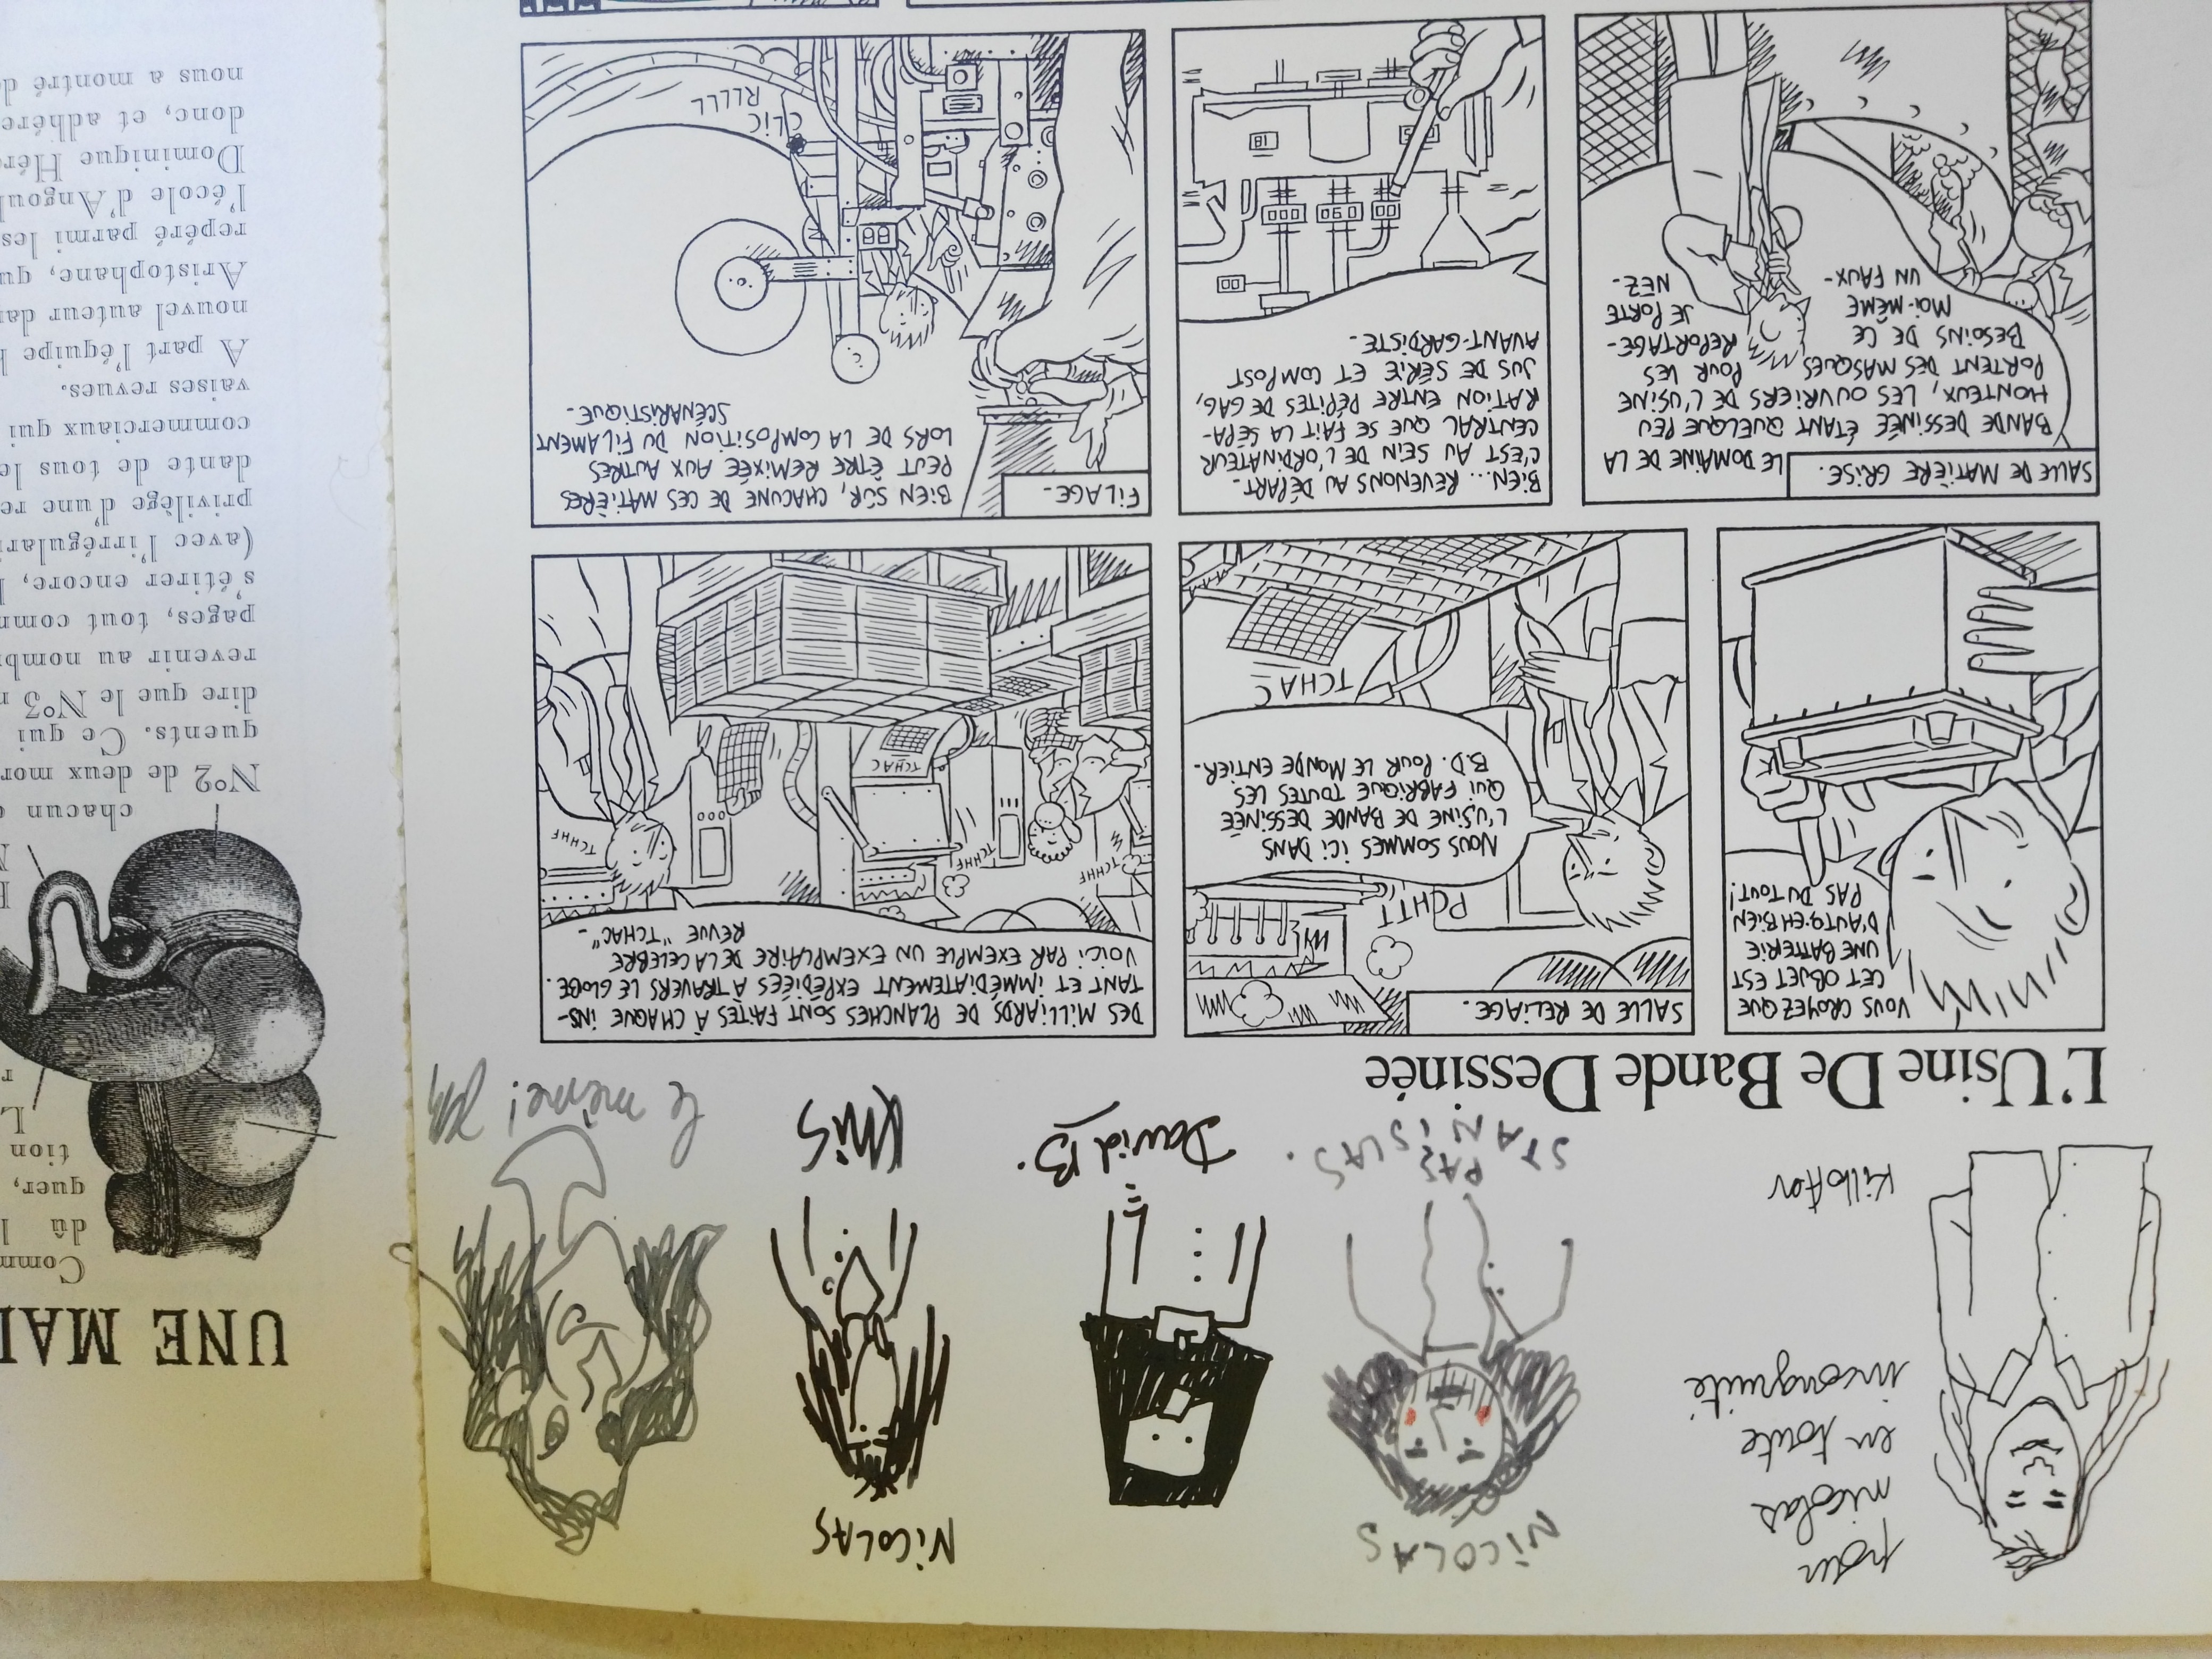 pour
nicolas
en toute
incongruité
Killoffer
NiCOLAS
PAS
STANiSLAS.
David B.
NiCOLAS
KMiS
L'Usine De Bande Dessinée
VOUS CROYEZ QUE
CET OBJET EST
UNE BATTERIE
D'AUTO, EH BIEN
PAS DU TOUT!
SALLE DE RELIAGE.
PCHTT
NOUS SOMMES iCi DANS
L'USiNE DE BANDE DESSiNÉE
QUi FABRiQUE TOUTES LES
B.D. POUR LE MONDE ENTiER.
TCHAC
DES MiLLiARDS DE PLANCHES SONT FAiTES À CHAQUE iNS-
TANT ET iMMÉDiATEMENT EXPÉDiÉES À TRAVERS LE GLOBE.
VOiCi PAR EXEMPLE UN EXEMPLAiRE DE LA CÉLÈBRE
REVUE "TCHAC"-
TCHHF
TCHHF
TCHHF
TCHAC
SALLE DE MATiÈRE GRiSE.
LE DOMAiNE DE LA
BANDE DESSiNÉE ÉTANT QUELQUE PEU
HONTEUX, LES OUVRiERS DE L'USiNE
PORTENT DES MASQUES
POUR LES
BESOiNS DE CE
REPORTAGE-
MOi-MÊME
JE PORTE
UN FAUX-
NEZ-
BiEN... REVENONS AU DÉPART-
C'EST AU SEiN DE L'ORDiNATEUR
CENTRAL QUE SE FAiT LA SÉPA-
RATiON ENTRE PÉPiTES DE GAG,
JUS DE SÉRiE ET COMPOST
AVANT-GARDiSTE-
FiLAGE-
BiEN SÛR, CHACUNE DE CES MATiÈRES
PEUT ÊTRE REMiXÉE AUX AUTRES
LORS DE LA COMPOSiTiON DU FiLAMENT
SCÉNARiSTiQUE-
CLiC
RLLLL
UNE MAL
Comm
dû l
quer,
tion
L
r
chacun
N°2 de deux mor
quents. Ce qui
dire que le N°3
revenir au nomb
pages, tout comm
s'étirer encore,
(avec l'irrégulari
privilège d'une re
dante de tous le
commerciaux qui
vaises revues.
A part l'équipe
nouvel auteur dan
Aristophane, qu
repéré parmi les
l'école d'Angoul
Dominique Hér
donc, et adhére
nous a montré d